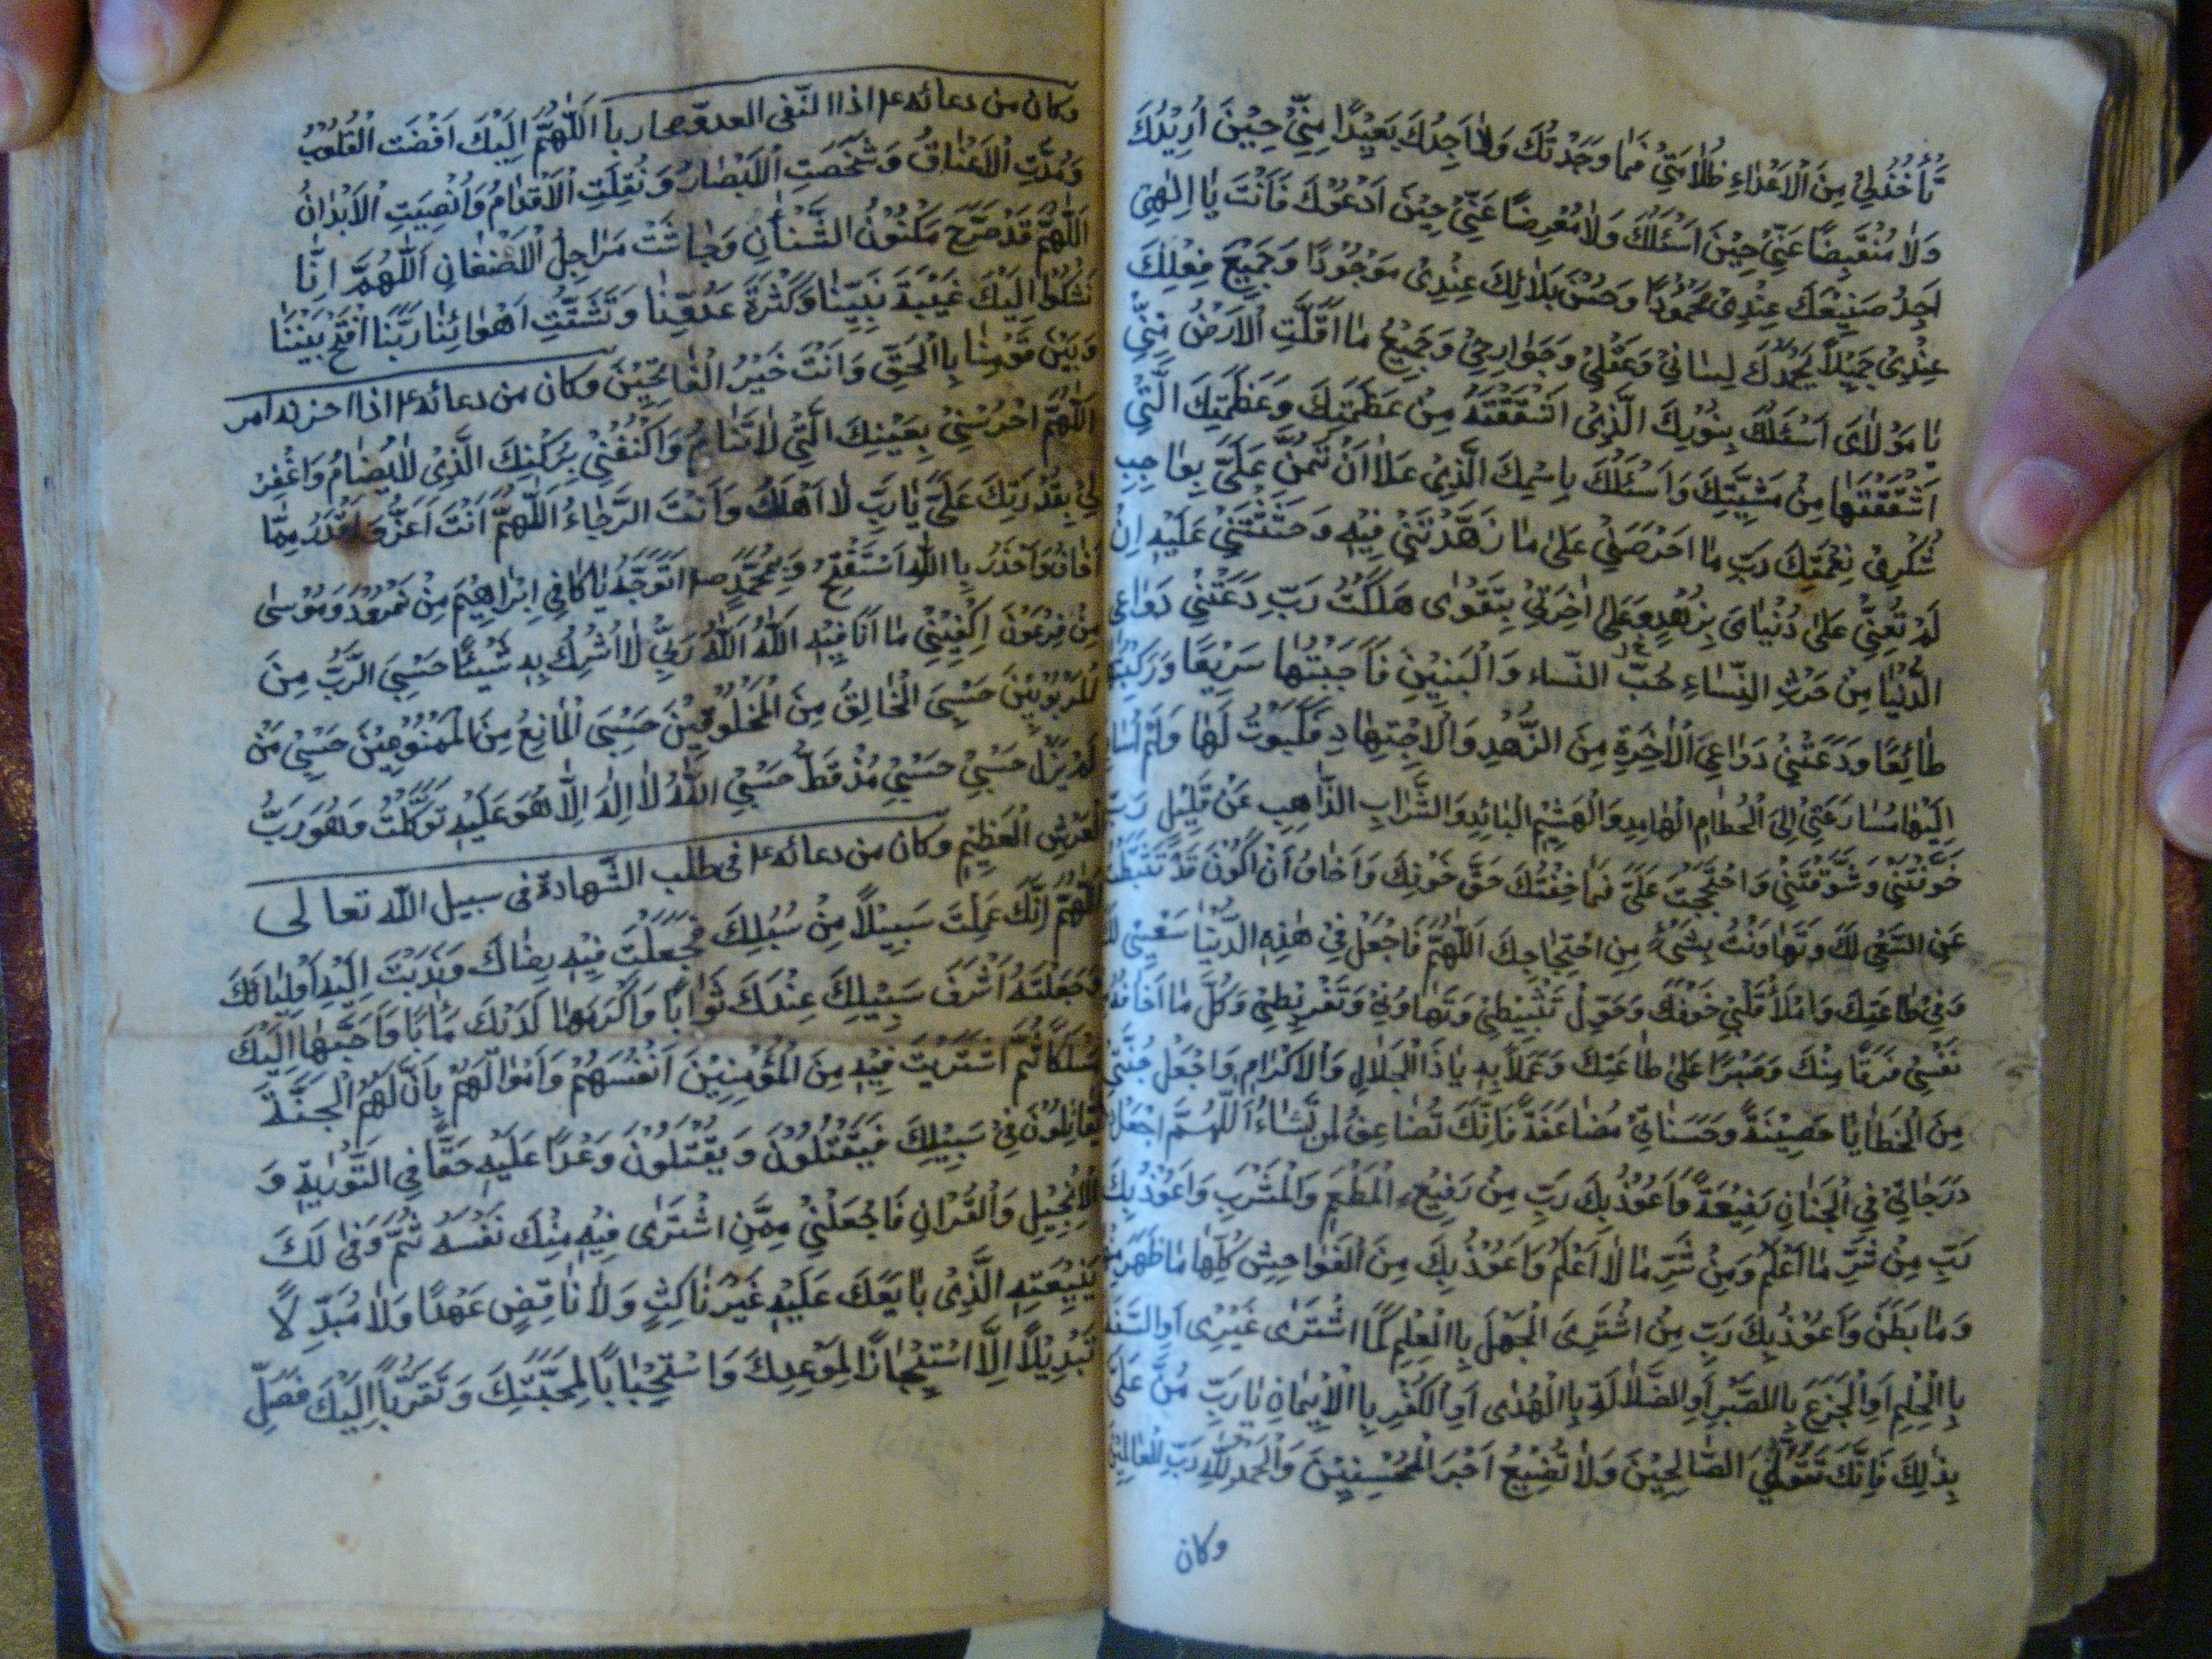 تَأْخُذُلِي مِنَ الْاَعْدٰاءِ ظُلٰامَتِيْ فَمٰا وَجَدْتُكَ وَلٰا اَجِدُكَ بَعِيْدًا مِنِّيْ حِيْنَ اُرِيْدُكَ
وَلٰا مُنْقَبِضًا عَنِّيْ حِيْنَ اَسْئَلُكَ وَلٰا مُعْرِضًا عَنِّيْ حِيْنَ اَدْعُوْكَ فَاَنْتَ يٰا اِلٰهِيْ
اَجِدُ صَنِيْعَكَ عِنْدِيْ مَحْمُوْدًا وَحُسْنَ بَلٰائِكَ عِنْدِيْ مَوْجُوْدًا وَجَمِيْعَ فِعْلِكَ
عِنْدِيْ جَمِيْلًا يَحْمَدُكَ لِسٰانِيْ وَعَقْلِيْ وَجَوٰارِحِيْ وَجَمِيْعُ مٰا اَقَلَّتِ الْاَرْضُ مِنِّيْ
يٰا مَوْلٰايَ اَسْئَلُكَ بِنُوْرِكَ الَّذِيْ اشْتَقَقْتَهُ مِنْ عَظَمَتِكَ وَعَظَمَتِكَ الَّتِيْ
اشْتَقَقْتَهٰا مِنْ مَشِيَّتِكَ وَاَسْئَلُكَ بِاسْمِكَ الَّذِيْ عَلٰا اَنْ تَمُنَّ عَلَيَّ بِوٰاجِبِ
شُكْرِيْ نِعْمَتِكَ رَبِّ مٰا اَحْرَصَنِيْ عَلٰى مٰا زَهَّدْتَنِيْ فِيْهِ وَحَثَثْتَنِيْ عَلَيْهِ اِنْ
لَمْ تُعِنِّيْ عَلٰى دُنْيٰايَ بِزُهْدٍ وَعَلٰى اٰخِرَتِيْ بِتَقْوٰى هَلَكْتُ رَبِّ دَعَتْنِيْ دَوٰاعِي
الدُّنْيٰا مِنْ حَرْثِ النِّسٰاءِ حُبّ النّساء وَالْبَنِيْنَ فَاَجَبْتُهٰا سَرِيْعًا وَرَكَنْتُ
طٰائِعًا وَدَعَتْنِيْ دَوٰاعِي الْاٰخِرَةِ مِنَ الزُّهْدِ وَالْاِجْتِهٰادِ فَكَبَوْتُ لَهٰا وَلَمْ اُسٰارِعْ
اِلَيْهٰا مُسٰارَعَتِيْ اِلَى الْحُطٰامِ الْهٰامِدِ وَالْهَشِيْمِ الْبٰائِدِ وَالسَّرٰابِ الذّٰاهِبِ عَنْ قَلِيْلٍ رَبِّ
خَوَّفْتَنِيْ وَشَوَّقْتَنِيْ وَاحْتَجَجْتَ عَلَيَّ فَمٰا خِفْتُكَ حَقَّ خَوْفِكَ وَاَخٰافُ اَنْ اَكُوْنَ قَدْ تَثَبَّطْتُ
عَنِ السَّعْيِ لَكَ وَتَهٰاوَنْتُ بِشَيْءٍ مِنِ احْتِجٰاجِكَ اَللّٰهُمَّ فَاجْعَلْ فِيْ هٰذِهِ الدُّنْيٰا سَعْيِيْ لَكَ
وَفِيْ طٰاعَتِكَ وَامْلَأْ قَلْبِيْ خَوْفَكَ وَحَوِّلْ تَثْبِيْطِيْ وَتَهٰاوُنِيْ وَتَفْرِيْطِيْ وَكُلَّ مٰا اَخٰافُهُ
نَفْسِيْ فَرَقًا مِنْكَ وَصَبْرًا عَلٰى طٰاعَتِكَ وَعَمَلًا بِهِ يٰا ذَا الْجَلٰالِ وَالْاِكْرٰامِ وَاجْعَلْ جُنَّتِيْ
مِنَ الْخَطٰايٰا حَصِيْنَةً وَحَسَنٰاتِيْ مُضٰاعَفَةً فَاِنَّكَ تُضٰاعِفُ لِمَنْ تَشٰاءُ اَللّٰهُمَّ اجْعَلْ
دَرَجٰاتِيْ فِي الْجِنٰانِ رَفِيْعَةً وَاَعُوْذُ بِكَ رَبِّ مِنْ رَفِيْعِ الْمَطْعَمِ وَالْمَشْرَبِ وَاَعُوْذُ بِكَ
رَبِّ مِنْ شَرِّ مٰا اَعْلَمُ وَمِنْ شَرِّ مٰا لٰا اَعْلَمُ وَاَعُوْذُ بِكَ مِنَ الْفَوٰاحِشِ كُلِّهٰا مٰا ظَهَرَ مِنْهٰا
وَمٰا بَطَنَ وَاَعُوْذُ بِكَ رَبِّ مِنْ اَشْتَرِيَ الْجَهْلَ بِالْعِلْمِ كَمَا اشْتَرٰى غَيْرِيْ اَوِ السَّفَهَ
بِالْحِلْمِ اَوِ الْجَزَعَ بِالصَّبْرِ اَوِ الضَّلٰالَةَ بِالْهُدٰى اَوِ الْكُفْرَ بِالْاِيْمٰانِ يٰا رَبِّ مُنَّ عَلَيَّ
بِذٰلِكَ فَاِنَّكَ تَتَوَلَّى الصّٰالِحِيْنَ وَلٰا تُضِيْعُ اَجْرَ الْمُحْسِنِيْنَ وَالْحَمْدُ لِلّٰهِ رَبِّ الْعٰالَمِيْنَ
وكان
وكان من دعائه ع اذا التقى العدوّ محاربا اَللّٰهُمَّ اِلَيْكَ اَفْضَتِ الْقُلُوْبُ
وَمُدَّتِ الْاَعْنٰاقُ وَشَخَصَتِ الْاَبْصٰارُ وَنُقِلَتِ الْاَقْدٰامُ وَاُنْضِيَتِ الْاَبْدٰانُ
اَللّٰهُمَّ قَدْ صَرَّحَ مَكْنُوْنُ الشَّنَاٰنِ وَجٰاشَتْ مَرٰاجِلُ الْاَضْغٰانِ اَللّٰهُمَّ اِنّٰا
نَشْكُوْا اِلَيْكَ غَيْبَةَ نَبِيِّنٰا وَكَثْرَةَ عَدُوِّنٰا وَتَشَتُّتِ اَهْوٰائِنٰا رَبَّنَا افْتَحْ بَيْنَنٰا
وَبَيْنَ قَوْمِنٰا بِالْحَقِّ وَاَنْتَ خَيْرُ الْفٰاتِحِيْنَ وكان من دعائه ع اذا احزنه امر
اَللّٰهُمَّ احْرُسْنِيْ بِعَيْنِكَ الَّتِيْ لٰا تَنٰامُ وَاكْنُفْنِيْ بِرُكْنِكَ الَّذِيْ لٰا يُضٰامُ وَاغْفِرْ
لِيْ بِقُدْرَتِكَ عَلَيَّ يٰا رَبِّ لٰا اَهْلَكُ وَاَنْتَ الرَّجٰاءُ اَللّٰهُمَّ اَنْتَ اَعَزُّ وَاَقْدَرُ مِمّٰا
اَخٰافُ وَاَحْذَرُ بِاللّٰهِ اَسْتَفْتِحُ وَبِمُحَمَّدٍ ص اَتَوَجَّهُ يٰا كٰافِيَ اِبْرٰاهِيْمَ مِنْ نَمْرُوْدَ وَمُوْسٰى
مِنْ فِرْعَوْنَ اِكْفِنِيْ مٰا اَنَا فِيْهِ اَللّٰهُ اَللّٰهُ رَبِّيْ لٰا اُشْرِكُ بِهِ شَيْئًا حَسْبِيَ الرَّبُّ مِنَ
الْمَرْبُوْبِيْنَ حَسْبِيَ الْخٰالِقُ مِنَ الْمَخْلُوْقِيْنَ حَسْبِيَ الْمٰانِعُ مِنَ الْمَمْنُوْعِيْنَ حَسْبِيْ مَنْ
لَمْ يَزَلْ حَسْبِيْ حَسْبِيْ مُذْ قَطُّ حَسْبِيَ اللّٰهُ لٰا اِلٰهَ اِلَّا هُوَ عَلَيْهِ تَوَكَّلْتُ وَهُوَ رَبُّ
الْعَرْشِ الْعَظِيْمِ وكان من دعائه ع فى طلب الشّهادة فى سبيل اللّه تعالى
اَللّٰهُمَّ اِنَّكَ عَمِلْتَ سَبِيْلًا مِنْ سُبُلِكَ فَجَعَلْتَ فِيْهِ رِضٰاكَ وَنَدَبْتَ اِلَيْهِ اَوْلِيٰائَكَ
وَجَعَلْتَهُ اَشْرَفَ سَبِيْلِكَ عِنْدَكَ ثَوٰابًا وَاَكْرَمَهٰا لَدَيْكَ مَاٰبًا وَاَحَبَّهٰا اِلَيْكَ
مَسْلَكًا ثُمَّ اشْتَرَيْتَ فِيْهِ مِنَ الْمُؤْمِنِيْنَ اَنْفُسَهُمْ وَاَمْوٰالَهُمْ بِاَنَّ لَهُمُ الْجَنَّةَ
يُقٰاتِلُوْنَ فِيْ سَبِيْلِكَ فَيَقْتُلُوْنَ وَيُقْتَلُوْنَ وَعْدًا عَلَيْهِ حَقًّا فِي التَّوْرٰيةِ وَ
الْاِنْجِيْلِ وَالْقُرْاٰنِ فَاجْعَلْنِيْ مِمَّنِ اشْتَرٰى فِيْهِ مِنْكَ نَفْسَهُ ثُمَّ وَفٰى لَكَ
بِبَيْعَتِهِ الَّذِيْ بٰايَعَكَ عَلَيْهِ غَيْرَ نٰاكِثٍ وَلٰا نٰاقِضٍ عَهْدًا وَلٰا مُبَدِّلًا
تَبْدِيْلًا اِلَّا اسْتِنْجٰازًا لِمَوْعِدِكَ وَاسْتِحْبٰابًا لِمَحَبَّتِكَ وَتَقَرُّبًا اِلَيْكَ فَصَلِّ